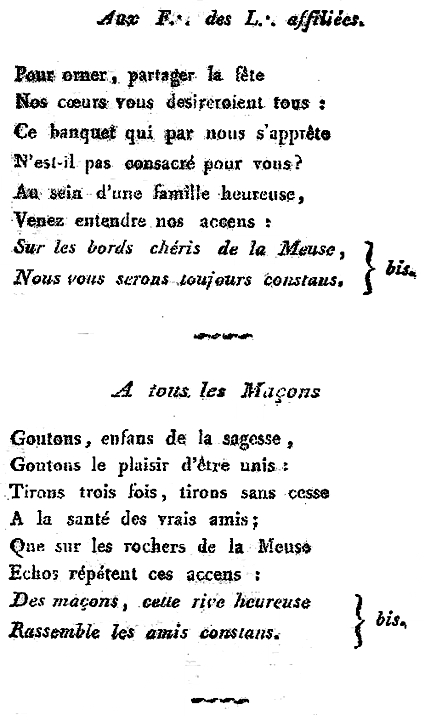 Aux F∴ des L∴ affiliées.
Pour orner, partager la fête
Nos cœurs vous desireroient tous :
Ce banquet qui par nous s'apprête
N'est-il pas consacré pour vous?
Au sein d'une famille heureuse,
Venez entendre nos accens :
Sur les bords chéris de la Meuse,
Nous vous serons toujours constans. } bis.
A tous les Maçons
Goutons, enfans de la sagesse,
Goutons le plaisir d'être unis :
Tirons trois fois, tirons sans cesse
A la santé des vrais amis;
Que sur les rochers de la Meuse
Echos répétent ces accens :
Des maçons, cette rive heureuse
Rassemble les amis constans. } bis.